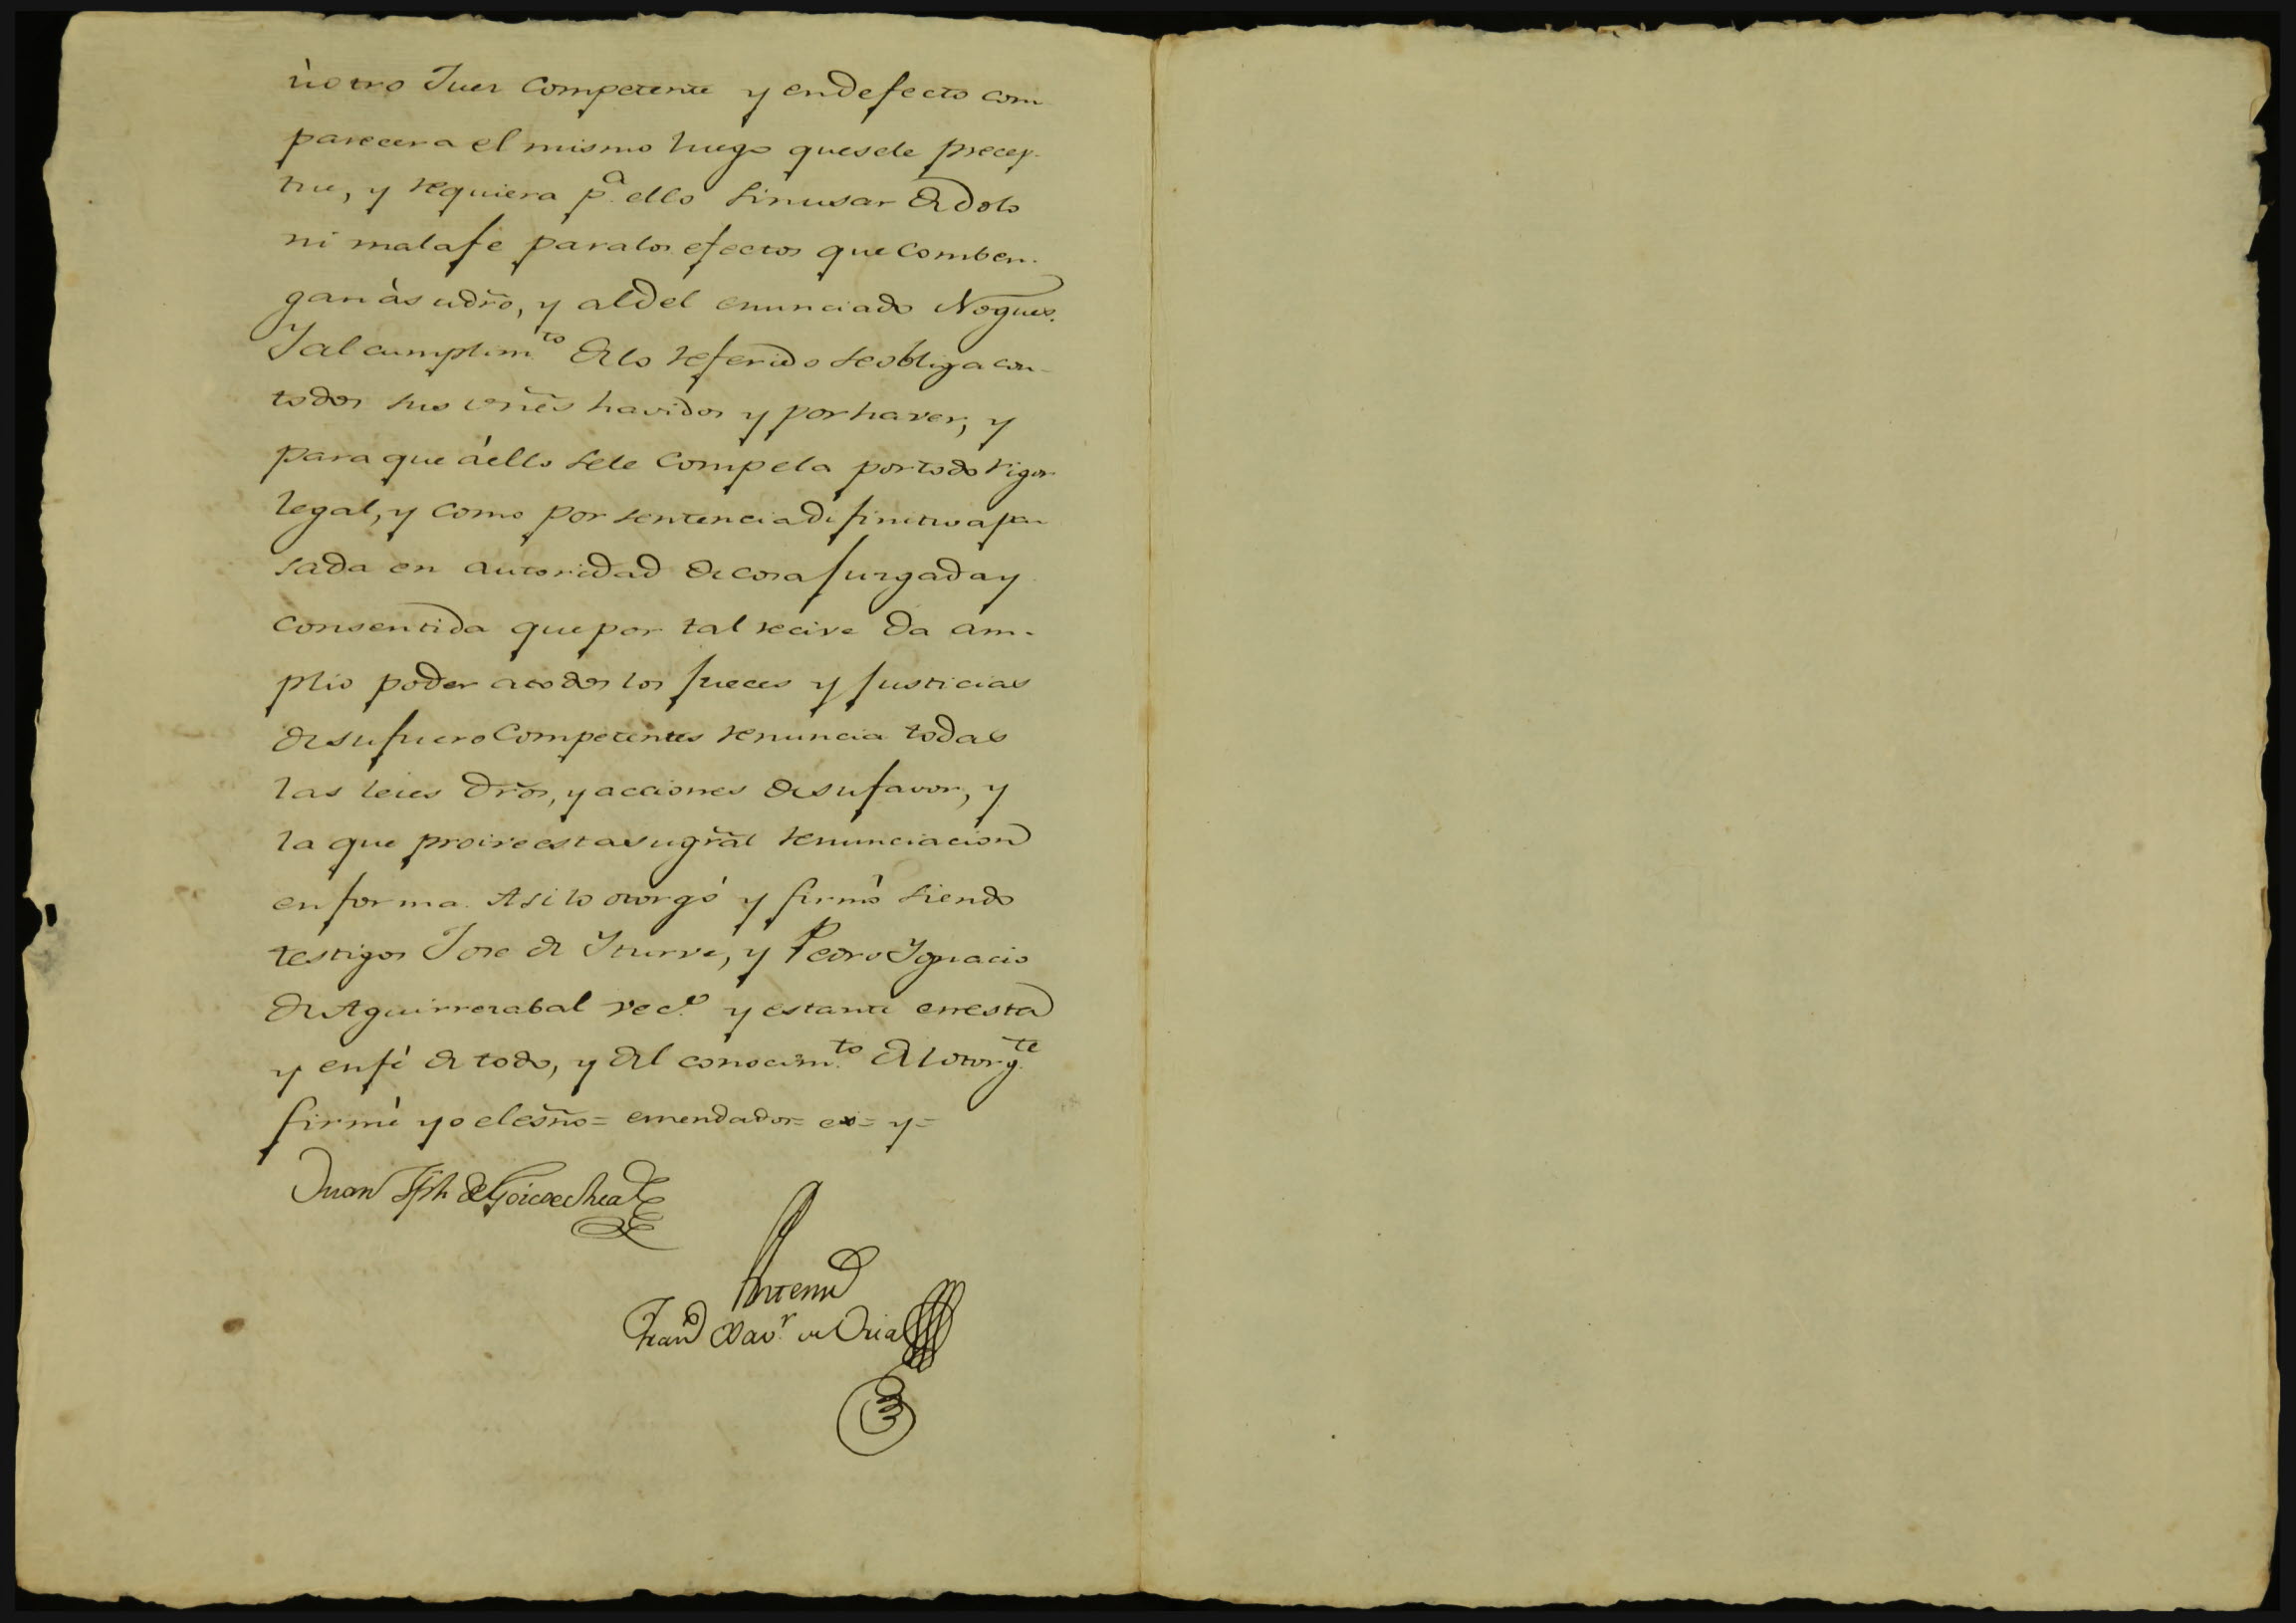 ù otro Juez Competente y en defecto com
parecera el mismo luego que se le precep-
tue, y requiera p.ª ello sin usar de dolo
ni mala fe para los efectos que comben-
gan à su dr̃o, y al del enunciado Nogues.
Y al cumplim.to de lo referido se obliga con
todos sus vñes havidos y por haver, y
para que á ello se le Compela por todo rigor
legal, y como por sentencia difinitiva pa
sada en autoridad de cosa Juzgada y
consentida que por tal recive da am-
plio poder a todos los Jueces y Justicias
de su fuero Competentes renuncia todas
las leies dr̃os, y acciones de su favor, y
la que proive esta su gr̃al renunciacion
en forma. Asi lo otorgó y firmó siendo
testigos Jose de Yturve, y Pedro Ygnacio
de Aguirrezabal vec.º y estante en esta
y en fé de todo, y del conocim.to del otorg.te
firmé yo el esño = emendados = es = y =
Juan Jph de Goicoechea
Antemi
Fran.co Xav.r de Oria